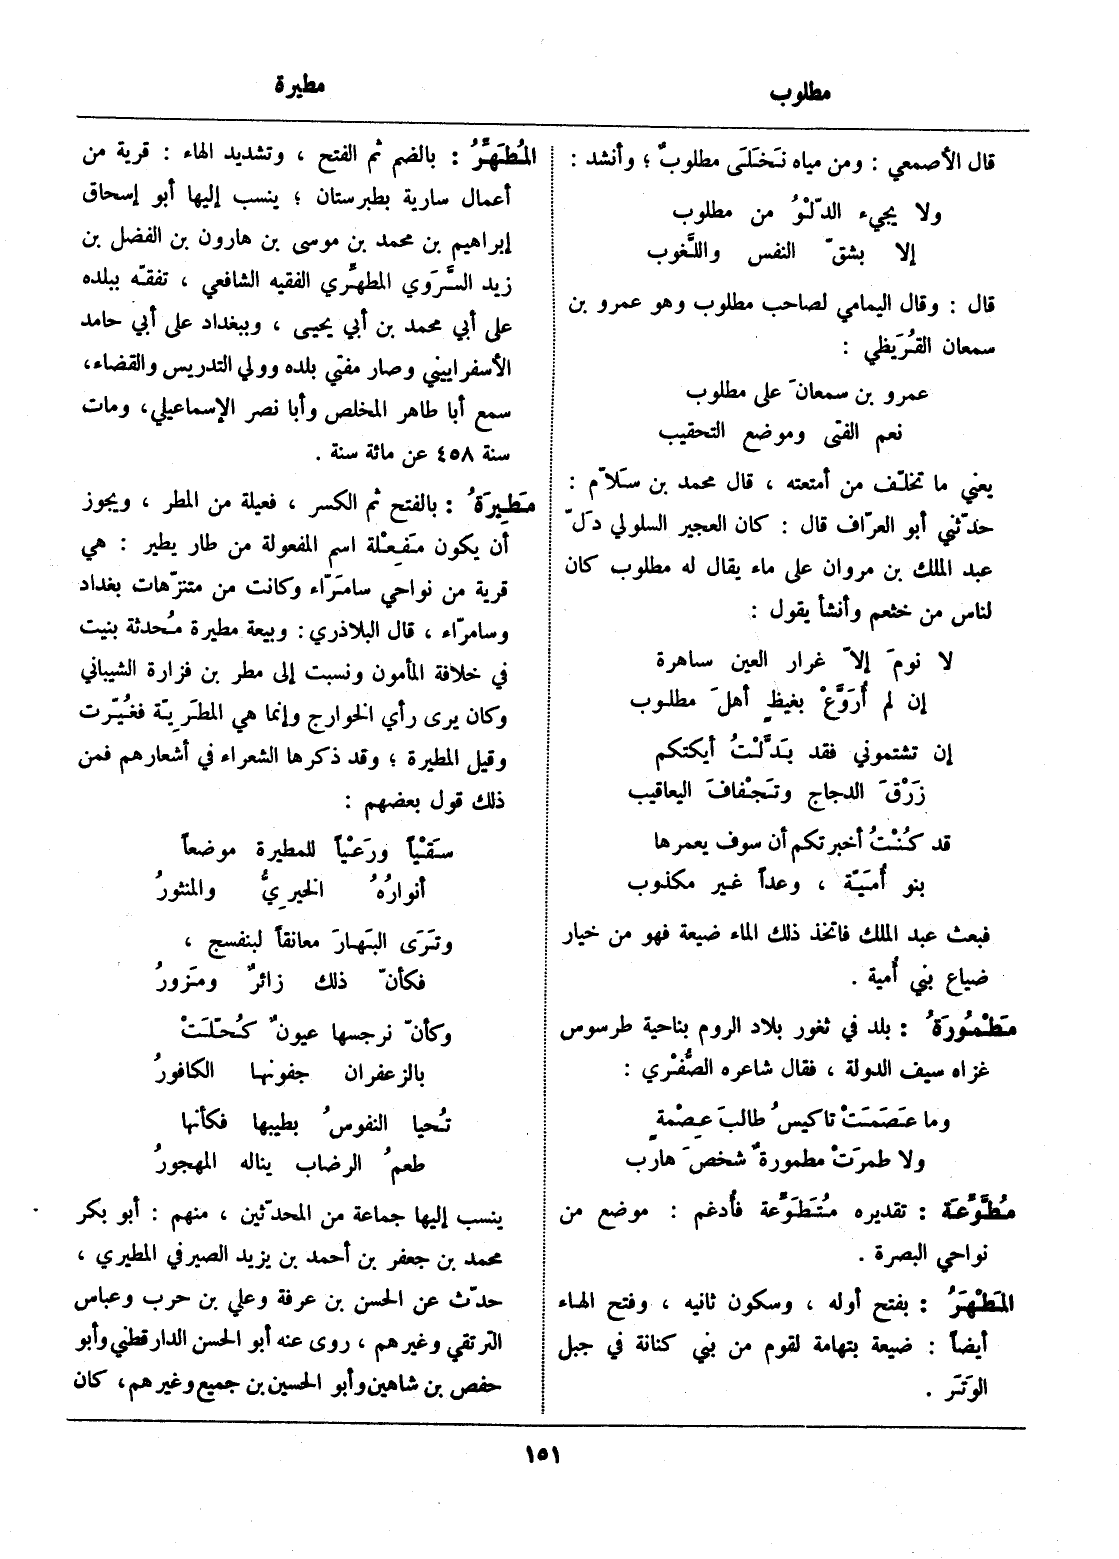 مطلوب
مطيرة
قال الأصمعي : ومن مياه نَخَلَى مطلوبٌ ؛ وأنشد :
ولا يجيء الدّلْوُ من مطلوب
إلا بشقّ النفس واللُّغوب
قال : وقال اليمامي لصاحب مطلوب وهو عمرو بن
سمعان القُرَيظي :
عمرو بن سمعانَ على مطلوب
نعم الفتى وموضع التحقيب
يعني ما تخلّف من أمتعته ، قال محمد بن سَلاّم :
حدّثني أبو العرّاف قال : كان العجير السلولي دَلّ
عبد الملك بن مروان على ماء يقال له مطلوب كان
لناس من خثعم وأنشأ يقول :
لا نومَ إلاّ غرار العين ساهرة
إن لم أُرَوَّعْ بغيظٍ أهلَ مطلوب
إن تشتموني فقد بَدَّلْتُ أيكتكم
زَرْقَ الدجاج وتَجْفافَ اليعاقيب
قد كُنْتُ أخبرتكم أن سوف يعمرها
بنو أُمَيّة ، وعداً غير مكذوب
فبعث عبد الملك فاتخذ ذلك الماء ضيعة فهو من خيار
ضياع بني أُمية .
مَطْمُورَةُ : بلد في ثغور بلاد الروم بناحية طرسوس
غزاه سيف الدولة ، فقال شاعره الصُّفْري :
وما عَصَمَتْ تاكيسُ طالبَ عِصْمةٍ
ولا طمرَتْ مطمورةٌ شخصَ هارب
مُطَّوِّعَة : تقديره مُتَطَوِّعة فأُدغم : موضع من
نواحي البصرة .
المَطْهَرُ : بفتح أوله ، وسكون ثانيه ، وفتح الهاء
أيضاً : ضيعة بتهامة لقوم من بني كنانة في جبل
الوَتَر .
المُطَهَّرُ : بالضم ثم الفتح ، وتشديد الهاء : قرية من
أعمال سارية بطبرستان ؛ ينسب إليها أبو إسحاق
إبراهيم بن محمد بن موسى بن هارون بن الفضل بن
زيد السَّرَوي المطهَّري الفقيه الشافعي ، تفقّه ببلده
على أبي محمد بن أبي يحيى ، وببغداد على أبي حامد
الأسفراييني وصار مفتي بلده وولي التدريس والقضاء،
سمع أبا طاهر المخلص وأبا نصر الإسماعيلي، ومات
سنة ٤٥٨ عن مائة سنة .
مَطِيرَةُ : بالفتح ثم الكسر ، فعيلة من المطر ، ويجوز
أن يكون مَفعِلة اسم المفعولة من طار يطير : هي
قرية من نواحي سامَرّاء وكانت من متنزّهات بغداد
وسامرّاء ، قال البلاذري : وبيعة مطيرة مُحدثة بنيت
في خلافة المأمون ونسبت إلى مطر بن فزارة الشيباني
وكان يرى رأي الخوارج وإنما هي المطَرِيّة فغُيّرت
وقيل المطيرة ؛ وقد ذكرها الشعراء في أشعارهم فمن
ذلك قول بعضهم :
سَقْياً ورَعْياً للمطيرة موضعاً
أنوارُهُ الخيريُّ والمنثورُ
وتَرَى البَهارَ معانقاً لبنفسج ،
فكأنّ ذلك زائرٌ ومَزورُ
وكأنّ نرجسها عيونٌ كُحّلَتْ
بالزعفران جفونها الكافورُ
تُحيا النفوسُ بطيبها فكأنها
طعمُ الرضاب يناله المهجورُ
ينسب إليها جماعة من المحدّثين ، منهم : أبو بكر
محمد بن جعفر بن أحمد بن يزيد الصيرفي المطيري ،
حدّث عن الحسن بن عرفة وعلي بن حرب وعباس
الترقي وغيرهم ، روى عنه أبو الحسن الدارقطني وأبو
حفص بن شاهين وأبو الحسين بن جميع وغيرهم، كان
١٥١